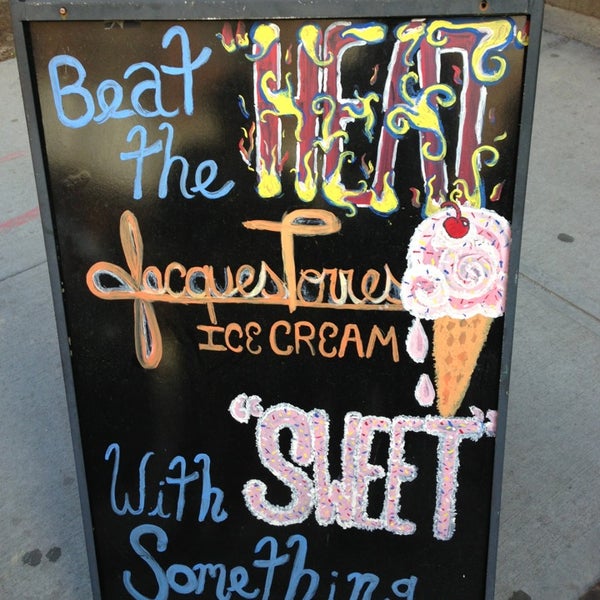 Beat "HEAT"
the
Jacques Torres
ICE CREAM
"SWEET"
With
Something